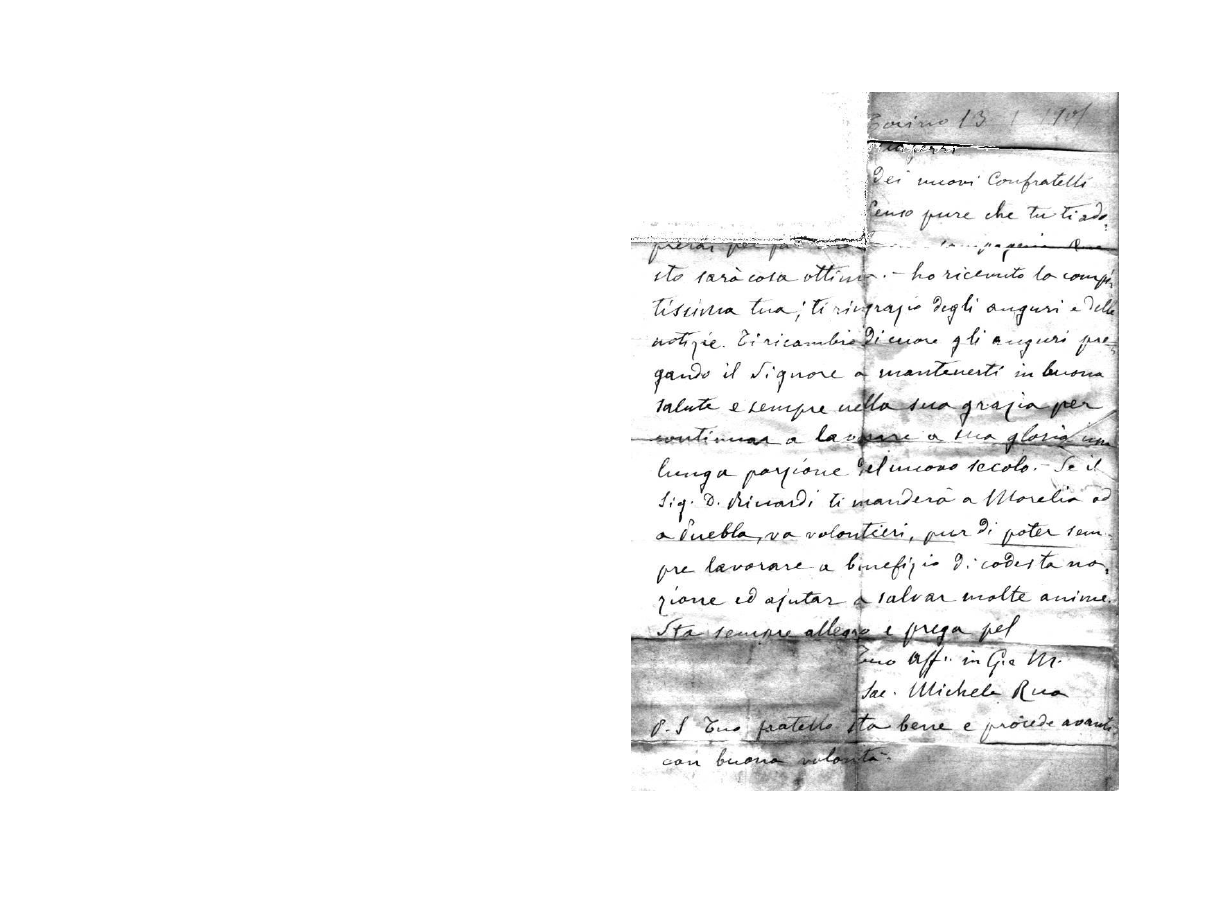 Torino 13 1 1901
dei nuovi Confratelli
Penso pure che tu ti ado,
prerai per
sto sarà cosa ottima. - ho ricevuto la compi,
tissima tua; ti ringrazio degli auguri e delle
notizie. Ti ricambio di cuore gli auguri pre,
gando il Signore a mantenerti in buona
salute e sempre nella sua grazia per
continuar a lavorare a sua gloria una
lunga porzione del nuovo secolo. - Se il
Sig. D. Riccardi ti manderà a Morelia od
a Puebla, va volontieri, pur di poter sem-
pre lavorare a benefizio di codesta na,
zione ed ajutar a salvar molte anime.
Sta sempre allegro e prega pel
Tuo Aff. in G. e M.
Sac. Michele Rua
P. S Tuo fratello sta bene e procede avanti
con buona volontà.